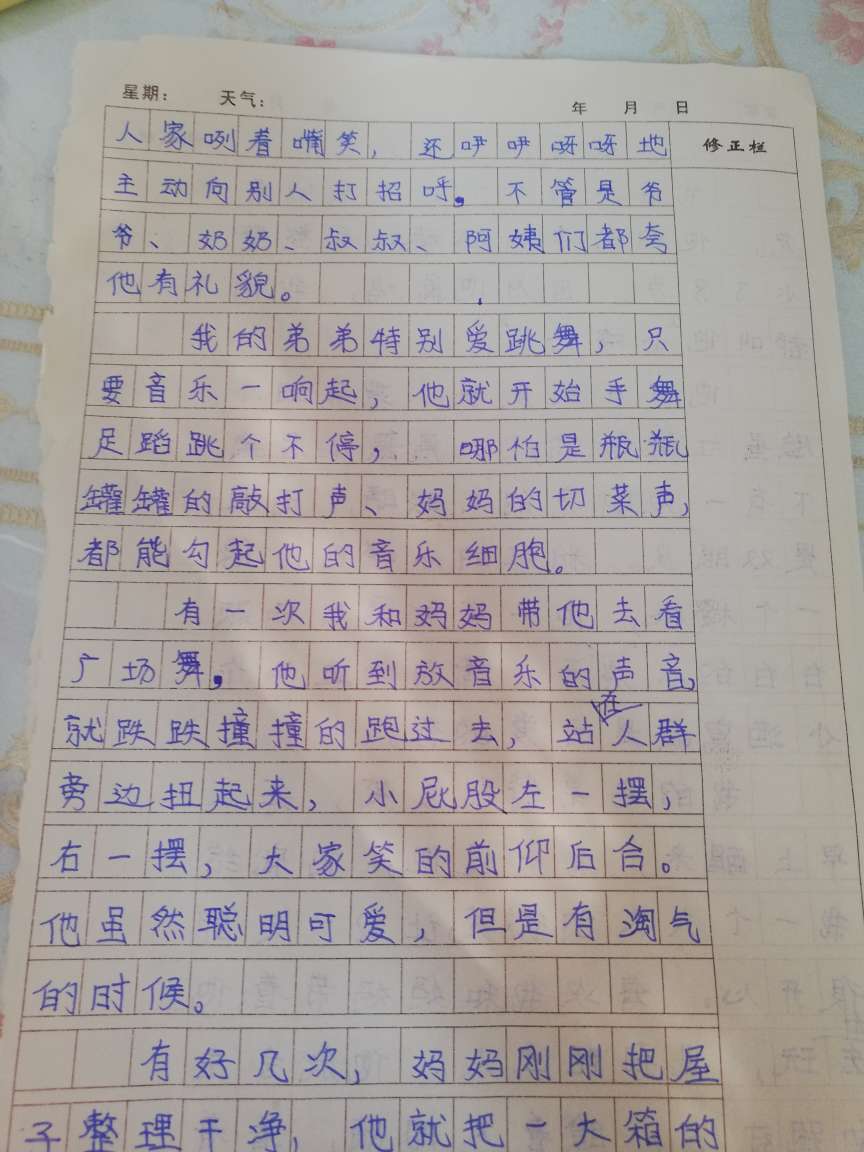 星期： 天气： 年 月 日
修正栏
人家咧着嘴笑，还咿咿呀呀地
主动向别人打招呼。不管是爷
爷、奶奶、叔叔、阿姨们都夸
他有礼貌。
我的弟弟特别爱跳舞，只
要音乐一响起，他就开始手舞
足蹈跳个不停，哪怕是瓶瓶
罐罐的敲打声、妈妈的切菜声，
都能勾起他的音乐细胞。
有一次我和妈妈带他去看
广场舞。他听到放音乐的声音，
就跌跌撞撞的跑过去，站在人群
旁边扭起来，小屁股左一摆，
右一摆，大家笑的前仰后合。
他虽然聪明可爱，但是有淘气
的时候。
有好几次，妈妈刚刚把屋
子整理干净，他就把一大箱的